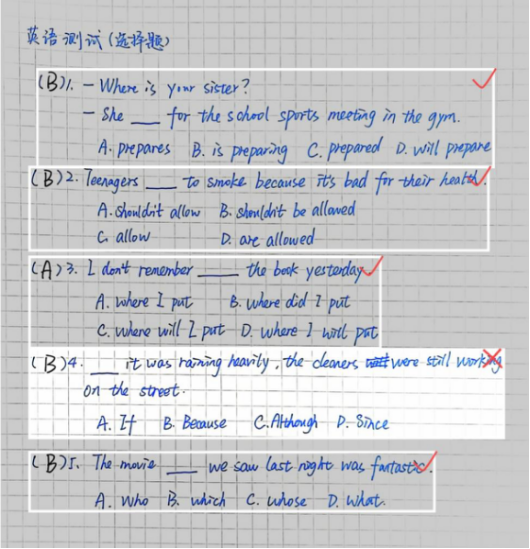 英语测试(选择题)
(B)1. - Where is your sister?
- She ___ for the school sports meeting in the gym.
A. prepares B. is preparing C. prepared D. will prepare
(B)2. Teenagers ___ to smoke because it's bad for their health.
A. shouldn't allow B. shouldn't be allowed
C. allow D. are allowed
(A)3. I don't remember ___ the book yesterday.
A. where I put B. where did I put
C. where will I put D. where I will put
(B)4. ___ it was raining heavily, the cleaners were still working
on the street.
A. If B. Because C. Although D. Since
(B)5. The movie ___ we saw last night was fantastic.
A. Who B. which C. whose D. What.